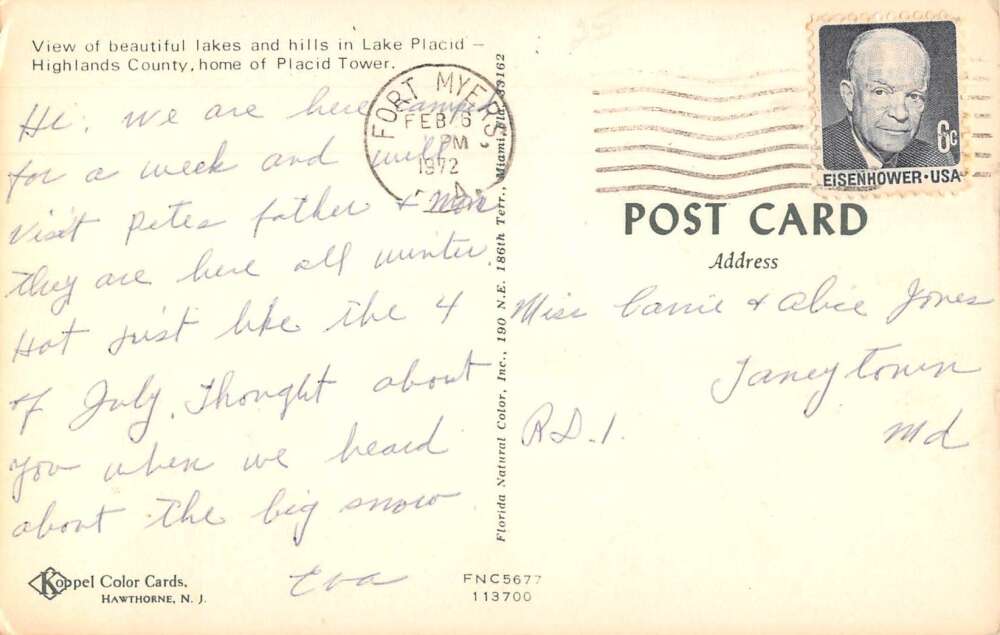 View of beautiful lakes and hills in Lake Placid –
Highlands County, home of Placid Tower.
Hi, we are here
for a week and will
visit Petes father + Mom
they are here all winter.
Hot just like the 4
of July. Thought about
you when we heard
about the big snow
Eva
Koppel Color Cards.
HAWTHORNE, N. J.
FNC5677
113700
Florida Natural Color, Inc., 190 N.E. 186th Terr., Miami, Fla. 33162
FORT MYERS
FEB 6
PM
1972
6c
EISENHOWER · USA
POST CARD
Address
Miss Carrie + Alice Jones
Taneytown
R.D.1. Md